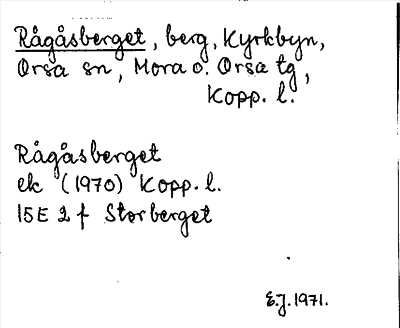 Rågåsberget, berg, Kyrkbyn,
Orsa sn, Mora o. Orsa tg,
Kopp. l.
Rågåsberget
ek (1970) Kopp. l.
15E 2 f Storberget
E.J. 1971.